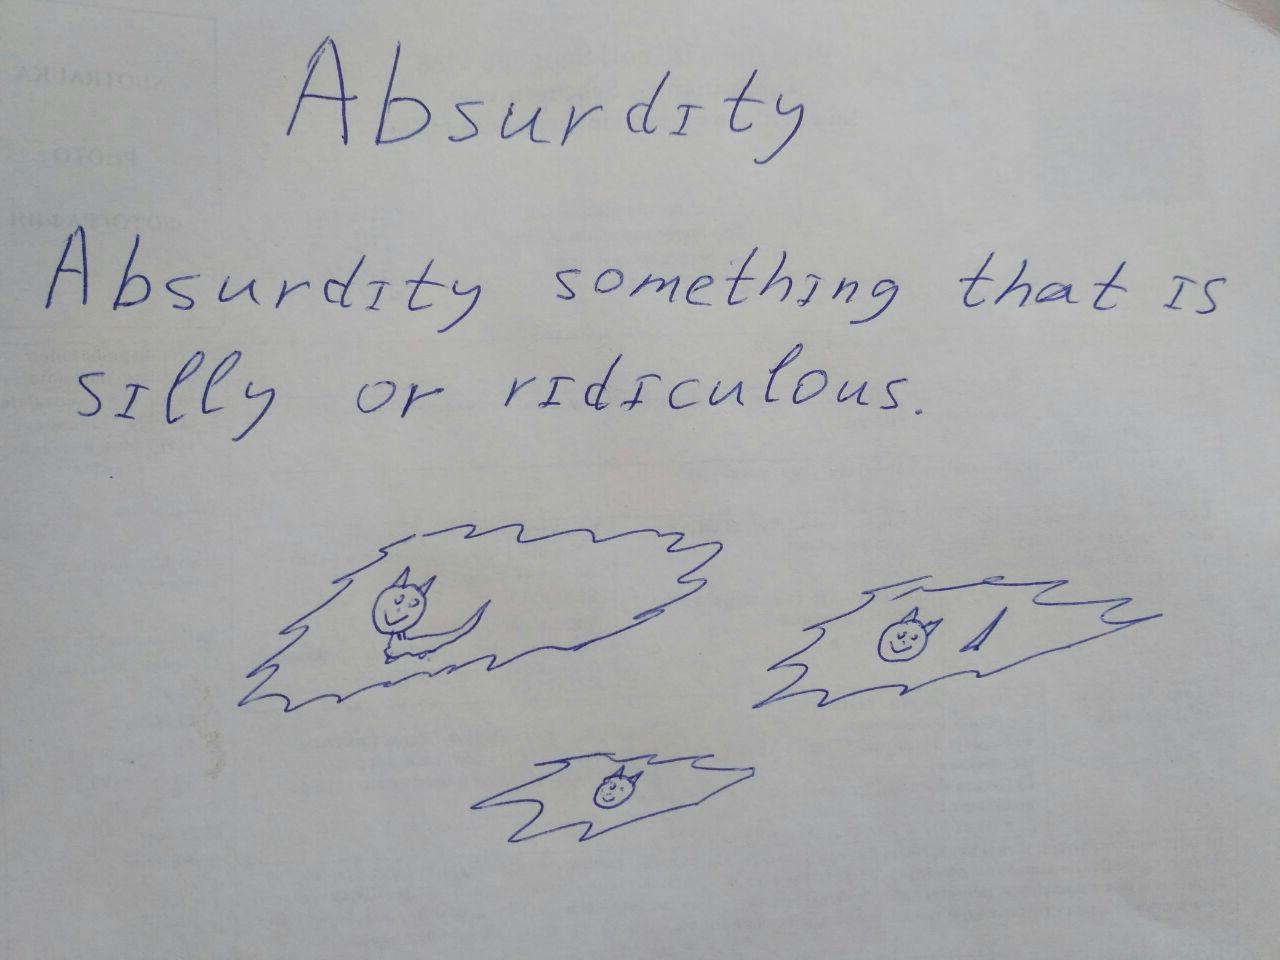 Absurdity
Absurdity something that is
silly or ridiculous.